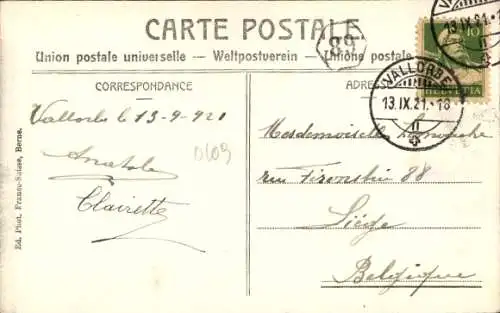 CARTE POSTALE
Union postale universelle – Weltpostverein – Unione postale
89
VALLORBE
13.IX.21.-18
13.IX.21.-18
10
HELVETIA
CORRESPONDANCE
Vallorbe 13-9-921
Anatole
Clairette
0109
Ed. Phot. Franco-Suisse, Berne.
ADRE
Mesdemoiselles
rue 88
Liége
Belgique